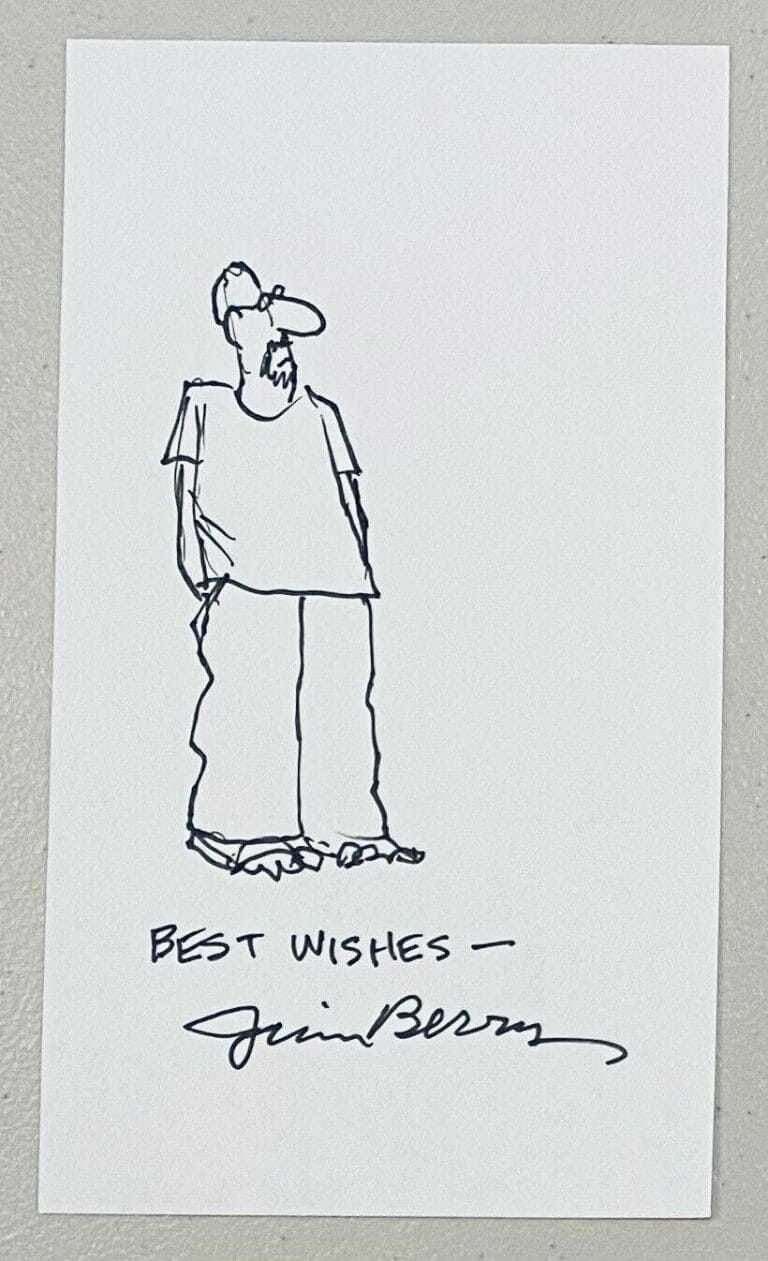 BEST WISHES —
Jim Berry